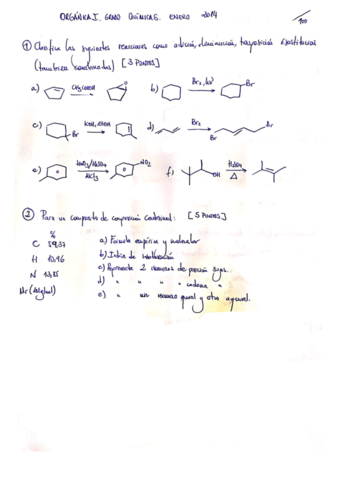 ORGÁNICA I. GRADO QUÍMICAS. ENERO 2014
① Clasifica las siguientes reacciones como adición, eliminación, trasposición o sustitución
(también combinadas) [3 PUNTOS]
a) CH3COOOH O b) Br2, hν Br
c) Br KOH, EtOH d) Br2 Br Br
e) HNO3/H2SO4 NO2 f) OH H2SO4 Δ
② Para un compuesto de composición centesimal: [5 PUNTOS]
%
C 59,37 a) Fórmula empírica y molecular
H 10,96 b) Índice de insaturación
N 13,85 c) Representa 2 isómeros de posición
Mr ( d) " " " " cadena "
e) " un isómero quiral y otro aquiral.